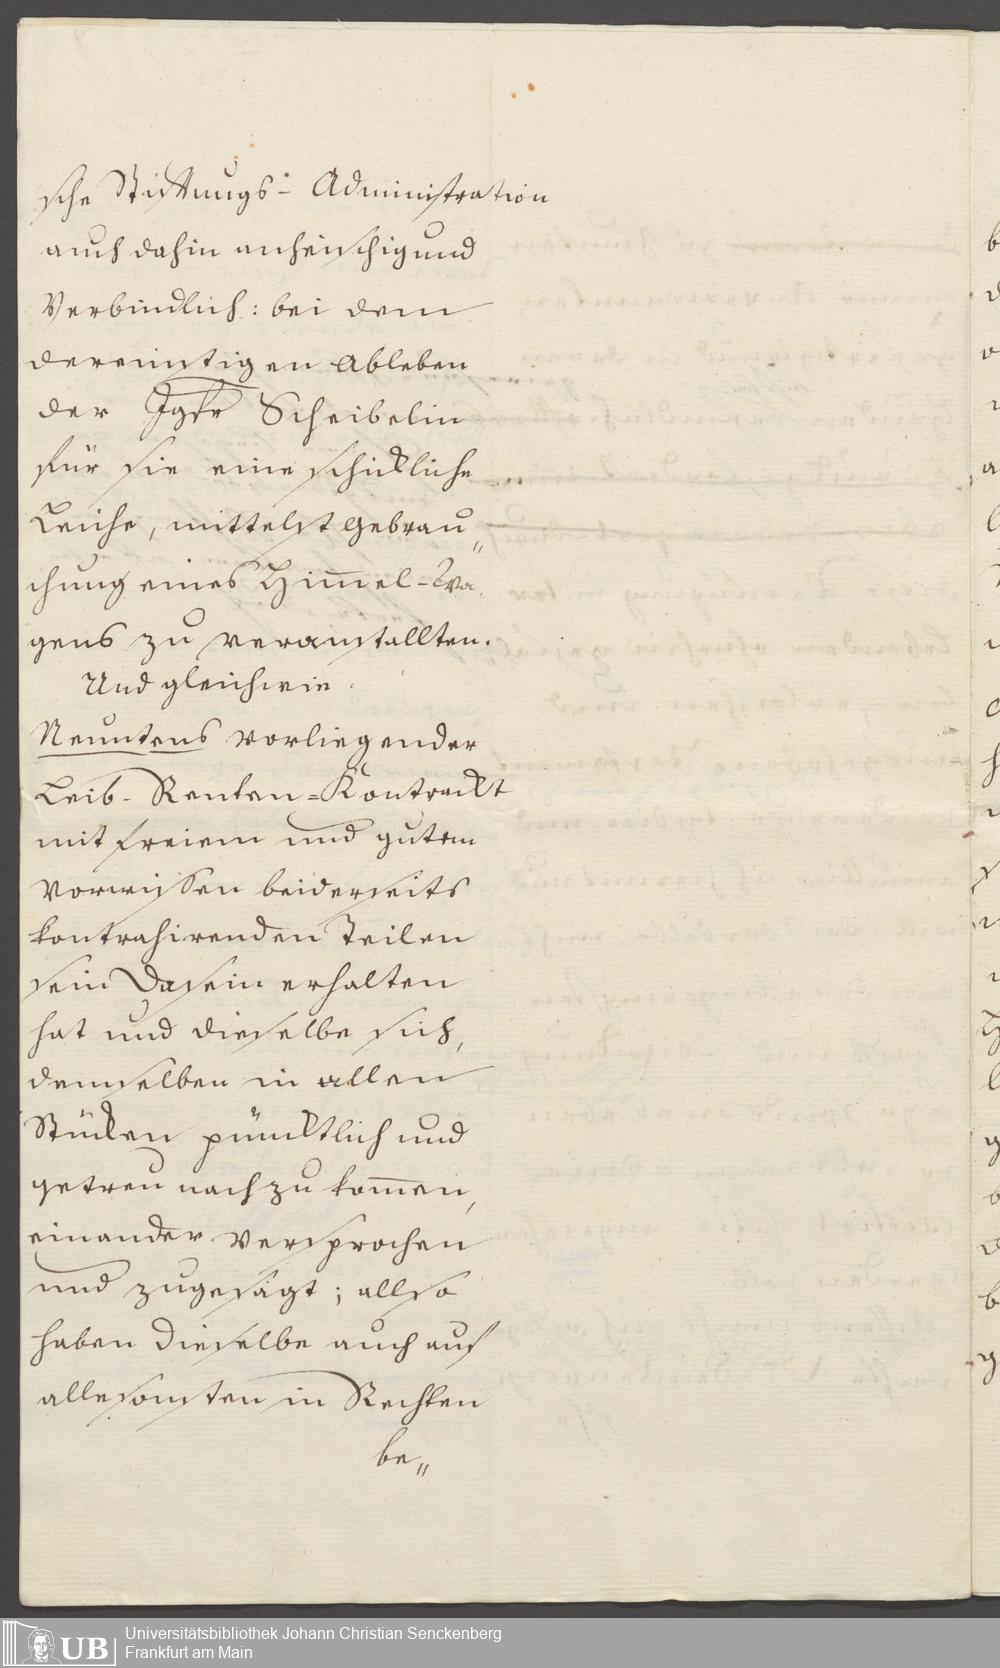 sche Stiftungs-Administration
auch dahin anheischig und
Verbindlich: bei dem
dereinstigen Ableben
der Jgfr Scheibelin
für sie eine schickliche
Leiche, mittelst Gebrau„
chung eines Himel-Wa„
gens zu veranstallten.
Und gleichwie
Neuntens vorliegender
Leib-Renten-Kontrackt
mit freiem und gutem
Vorwissen beiderseits
kontrahirenden Teilen
sein Dasein erhalten
hat und dieselbe sich,
demselben in allen
Stücken püncktlich und
getreu nach zu komen,
einander versprochen
und zugesagt; allso
haben Dieselbe auch auf
alle sonsten in Rechten
be„
UB Universitätsbibliothek Johann Christian Senckenberg
Frankfurt am Main